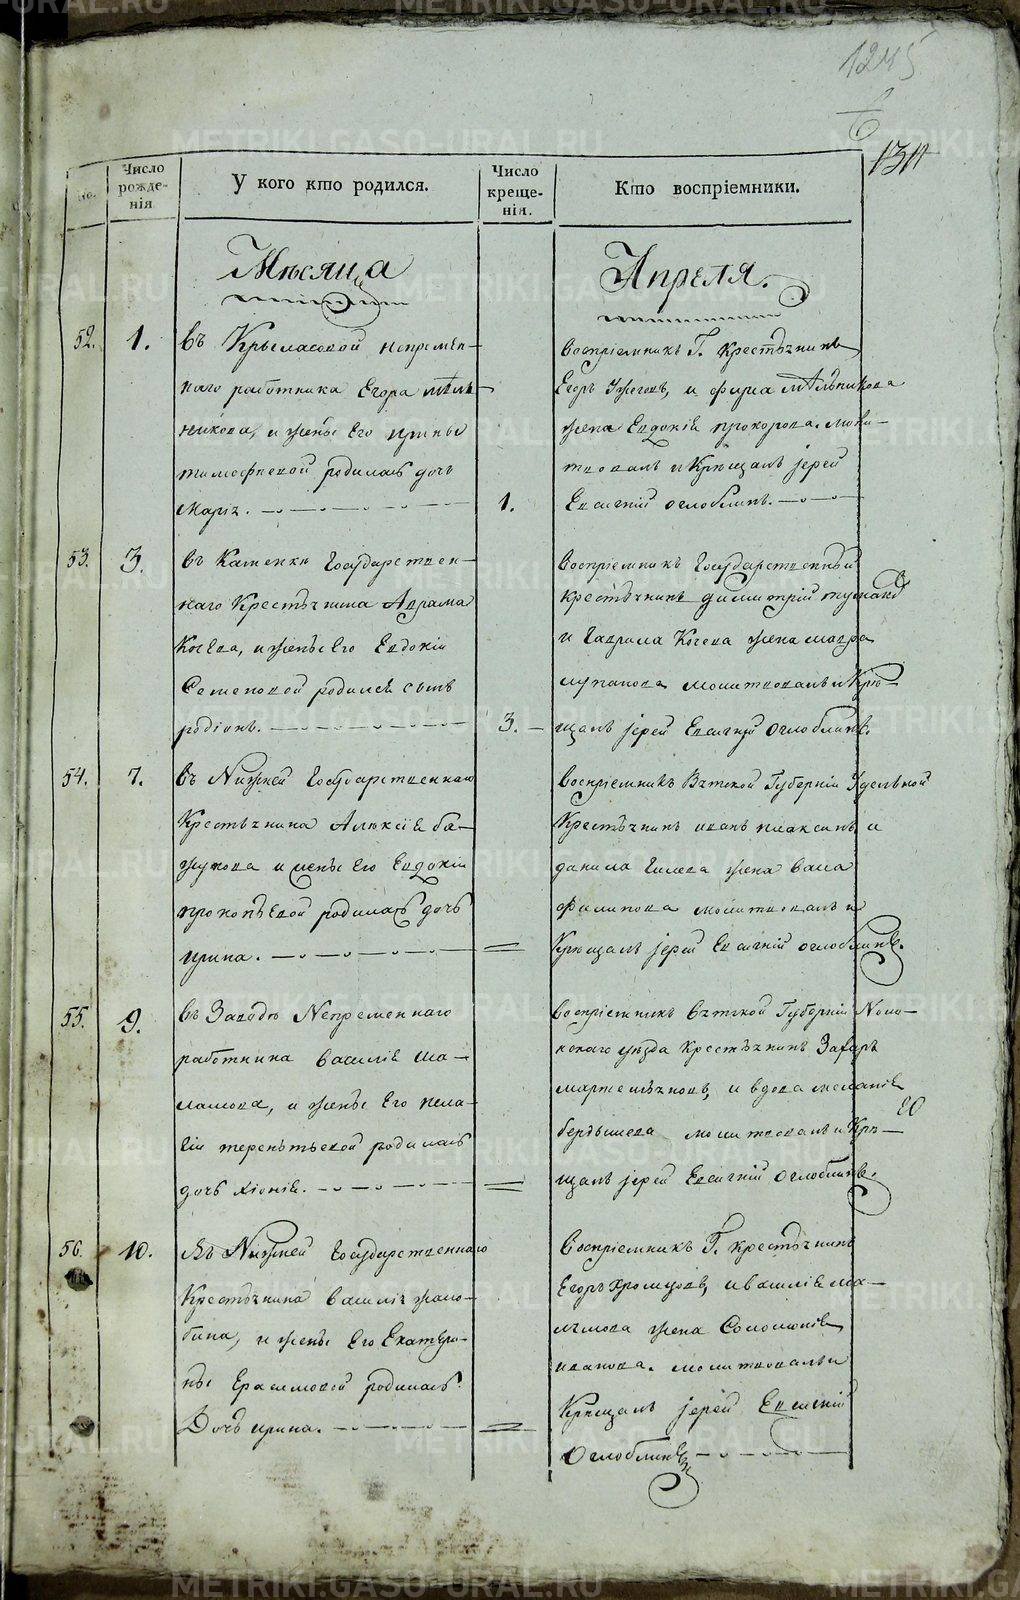 1245
6
No.
Число рожде-нія
У кого кто родился.
Число креще-нія.
Кто воспріемники.
Мѣсяца
Апреля.
52. 1.
въ Крыласовой непремен-
наго работника Егора мѣль
никова, и женѣ Его ирины
тимофѣевой родилась дочь
марія.
1.
воспріемникъ Г. крестьянинъ
Егоръ Ужеговъ, и фирса мѣльникова
жена Евдокія прохорова. моли-
твовалъ и Крещалъ іерей
Евсигній оглоблинъ.
53. 3.
въ Каменкѣ Государствен-
наго Крестьянина Аврама
Косева, и женѣ Его Евдокіи
Семеновой родился сынъ
родіонъ.
3.
воспріемникъ Государственный
крестьянинъ димитрій
и Гаврила Косева жена мавра
молитвовалъ и Кре-
щалъ іерей Евсигній оглоблинъ.
54. 7.
въ Нижней Государственнаго
Крестьянина Алексія ба-
жукова и женѣ Его Евдокіи
прокопьевой родилась дочь
ирина.
воспріемникъ Вятской Губерніи Удельной
Крестьянинъ иванъ плаксинъ и
данила Гилева жена
филипова молитвовалъ и
Крещалъ іерей Евсигній оглоблинъ.
55. 9.
въ Заводѣ Непременнаго
работника василія ша-
ламова, и женѣ Его пела-
гіи терентьевой родилась
дочь хіонія.
воспріемникъ вятской Губерніи Ноли-
нскаго уѣзда крестьянинъ Захаръ
мартемьяновъ, и вдова меланія
бердышева молитвовалъ и Кре-
щалъ іерей Евсигній Оглоблинъ.
56. 10.
Въ Нижней Государственнаго
Крестьянина василія жало-
бина, и женѣ Его Екатери-
нѣ Ерасимовой родилась
Дочь ирина.
Воспріемникъ Г. крестьянинъ
Егоръ Хромцовъ, и василія ма-
лѣмова жена Соломонія
иванова. молитвовалъ и
Крещалъ іерей Евсигній
Оглоблинъ
METRIKI.GASO-URAL.RU